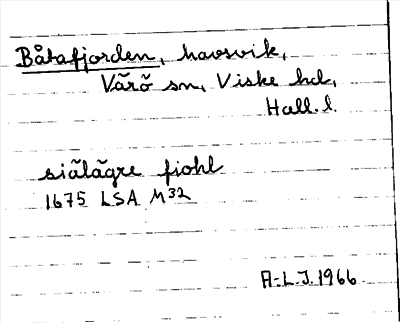 Båtafjorden, havsvik,
Värö sn, Viske hd,
Hall. l.
siälägre fiohl
1675 LSA M32
A-L.J. 1966